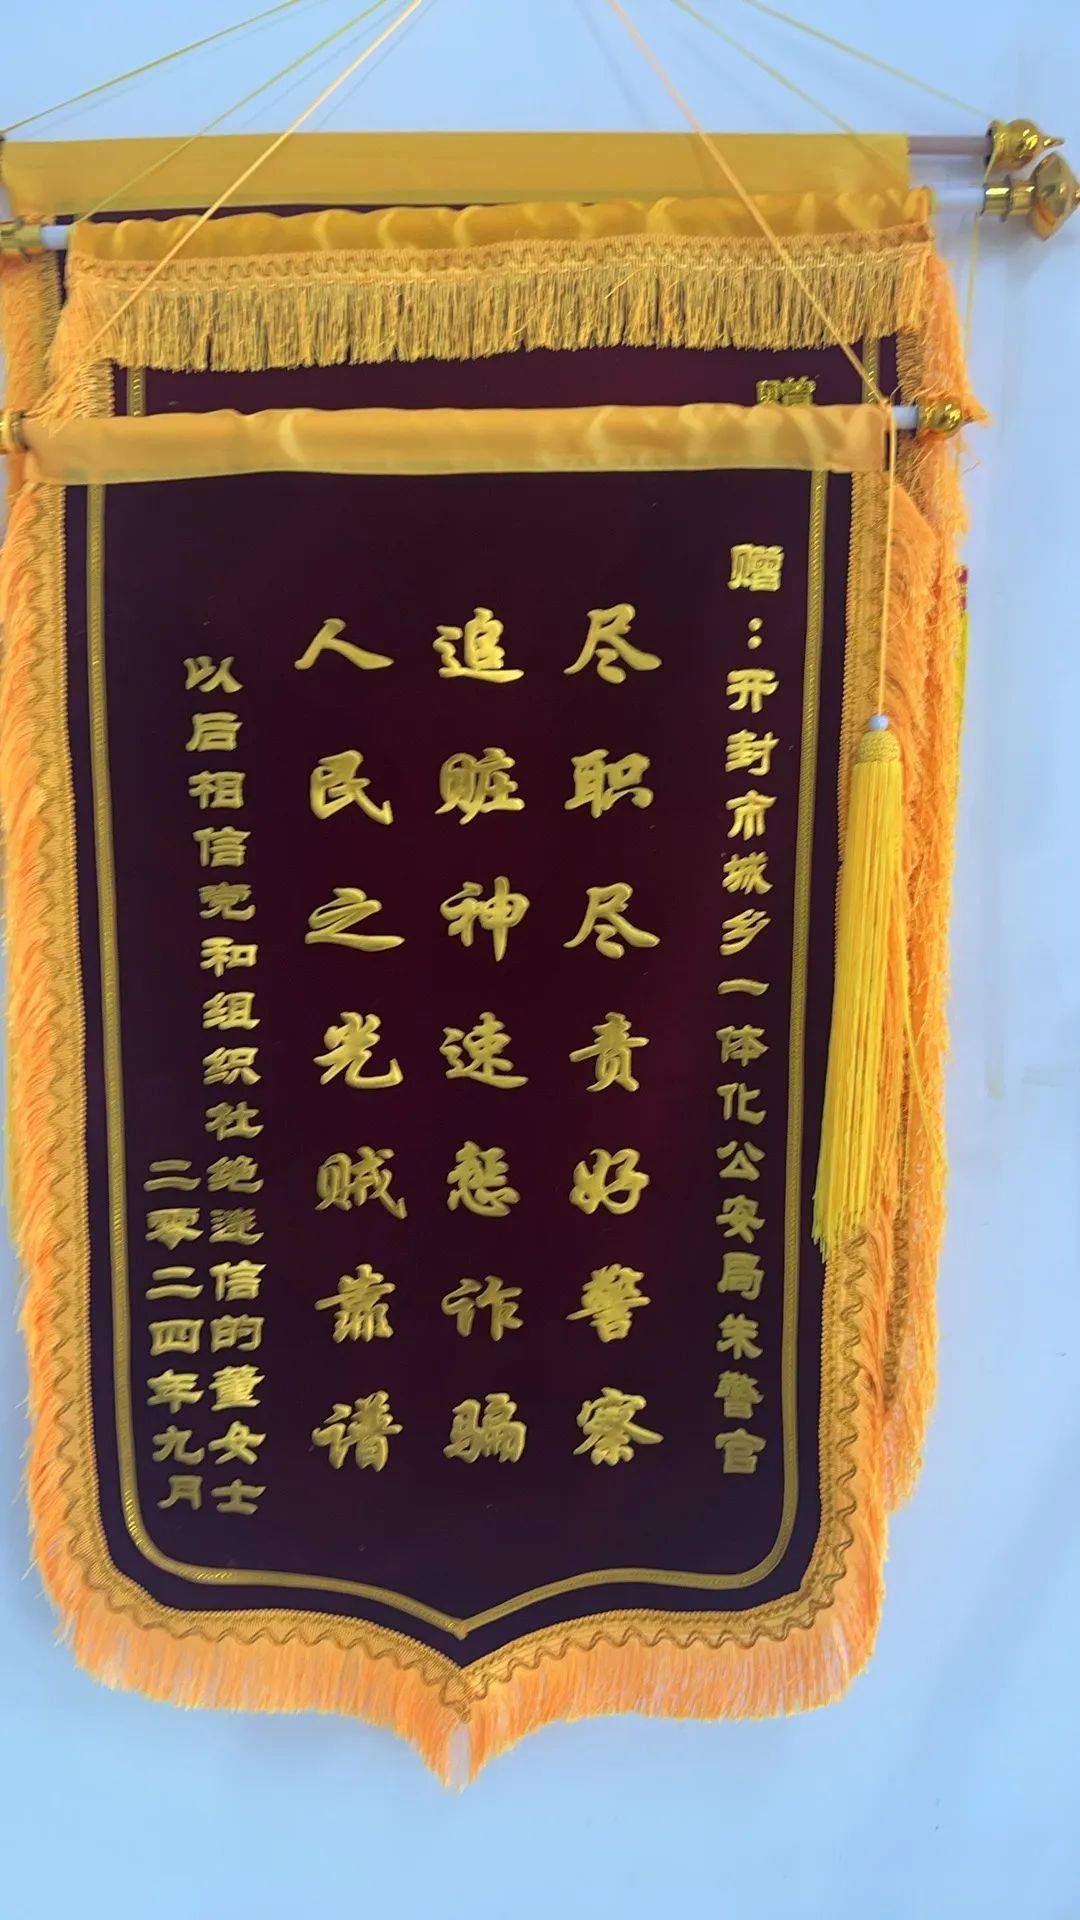 赠
赠：开封市城乡一体化公安局朱警官
尽职尽责好警察
追赃神速惩诈骗
人民之光贼靠谱
以后相信党和组织杜绝迷信的董女士
二零二四年九月